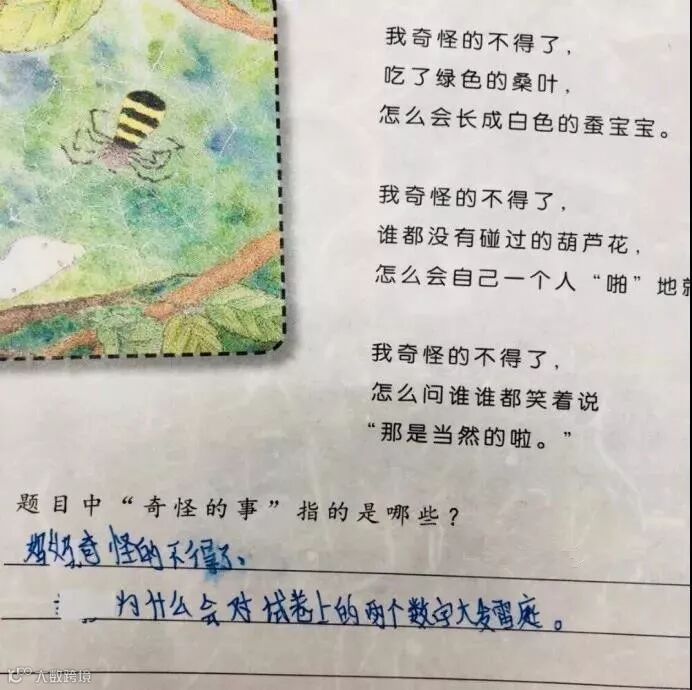 我奇怪的不得了，
吃了绿色的桑叶，
怎么会长成白色的蚕宝宝。
我奇怪的不得了，
谁都没有碰过的葫芦花，
怎么会自己一个人“啪”地
我奇怪的不得了，
怎么问谁谁都笑着说
“那是当然的啦。”
题目中“奇怪的事”指的是哪些？
妈妈奇怪的不得了、
为什么会对试卷上的两个数字大发雷庭。
大数跨境